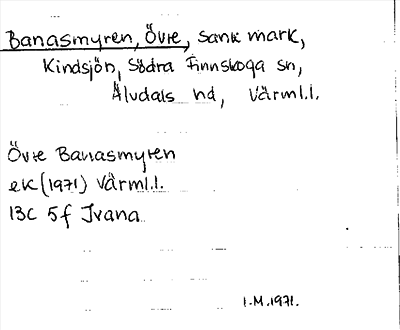 Banasmyren, Övre, sank mark,
Kindsjön, Södra Finnskoga sn,
Älvdals hd, Värml.l.
Övre Banasmyren
eK(1971) Värml.l.
13C 5f Ivana
I.M.1971.